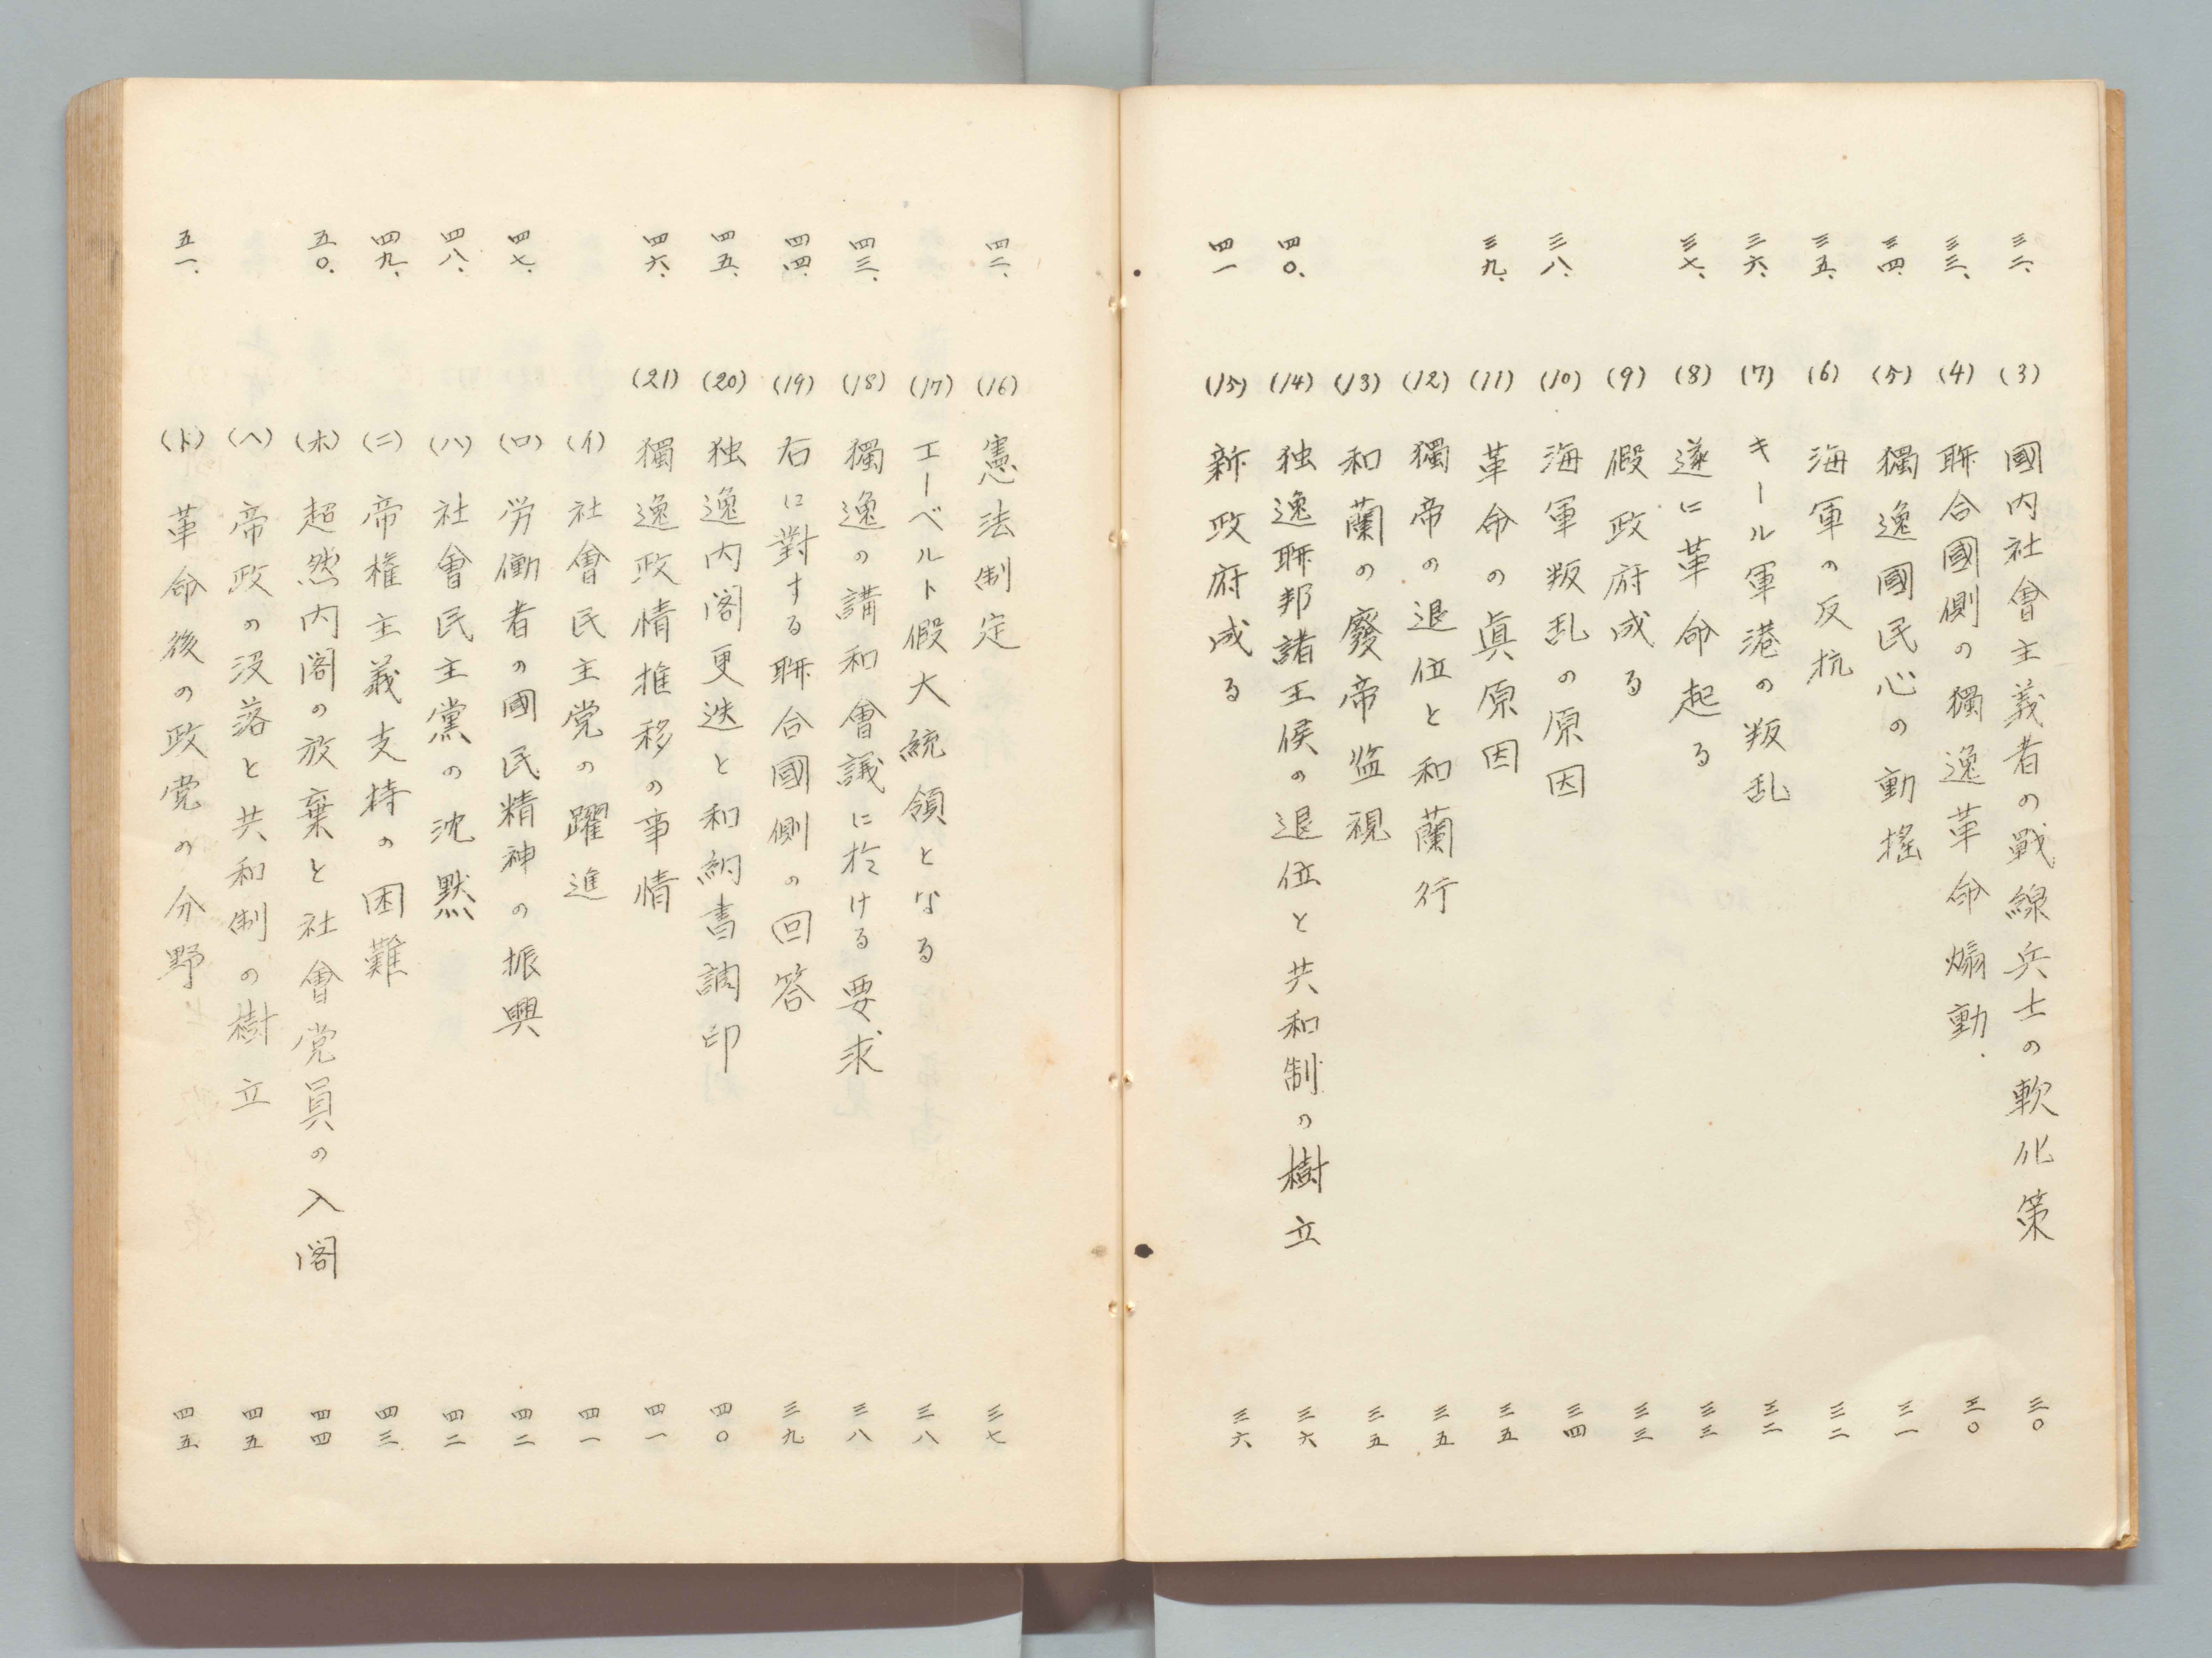 三二、 (3) 國内社會主義者の戰線兵士の軟化策 三〇
三三、 (4) 聯合國側の獨逸革命煽動. 三〇
三四、 (5) 獨逸國民心の動搖 三一
三五、 (6) 海軍の反抗 三二
三六、 (7) キール軍港の叛乱 三二
三七、 (8) 遂に革命起る 三三
(9) 假政府成る 三三
三八、 (10) 海軍叛乱の原因 三四
三九、 (11) 革命の眞原因 三五
(12) 獨帝の退位と和蘭行 三五
(13) 和蘭の廢帝監視 三五
四〇、 (14) 独逸聯邦諸王侯の退位と共和制の樹立 三六
四一 (15) 新政府成る 三六
四二、 (16) 憲法制定 三七
(17) エーベルト假大統領となる 三八
四三、 (18) 獨逸の講和會議に於ける要求 三八
四四、 (19) 右に對する聯合國側の回答 三九
四五、 (20) 独逸内閣更迭と和約書調印 四〇
四六、 (21) 獨逸政情推移の事情 四一
(イ) 社會民主党の躍進 四一
四七、 (ロ) 労働者の國民精神の振興 四二
四八、 (ハ) 社會民主黨の沈黙 四二
四九、 (ニ) 帝権主義支持の困難 四三
五〇、 (ホ) 超然内閣の放棄と社會党員の入閣 四四
(ヘ) 帝政の没落と共和制の樹立 四五
五一、 (ト) 革命後の政党の分野 四五